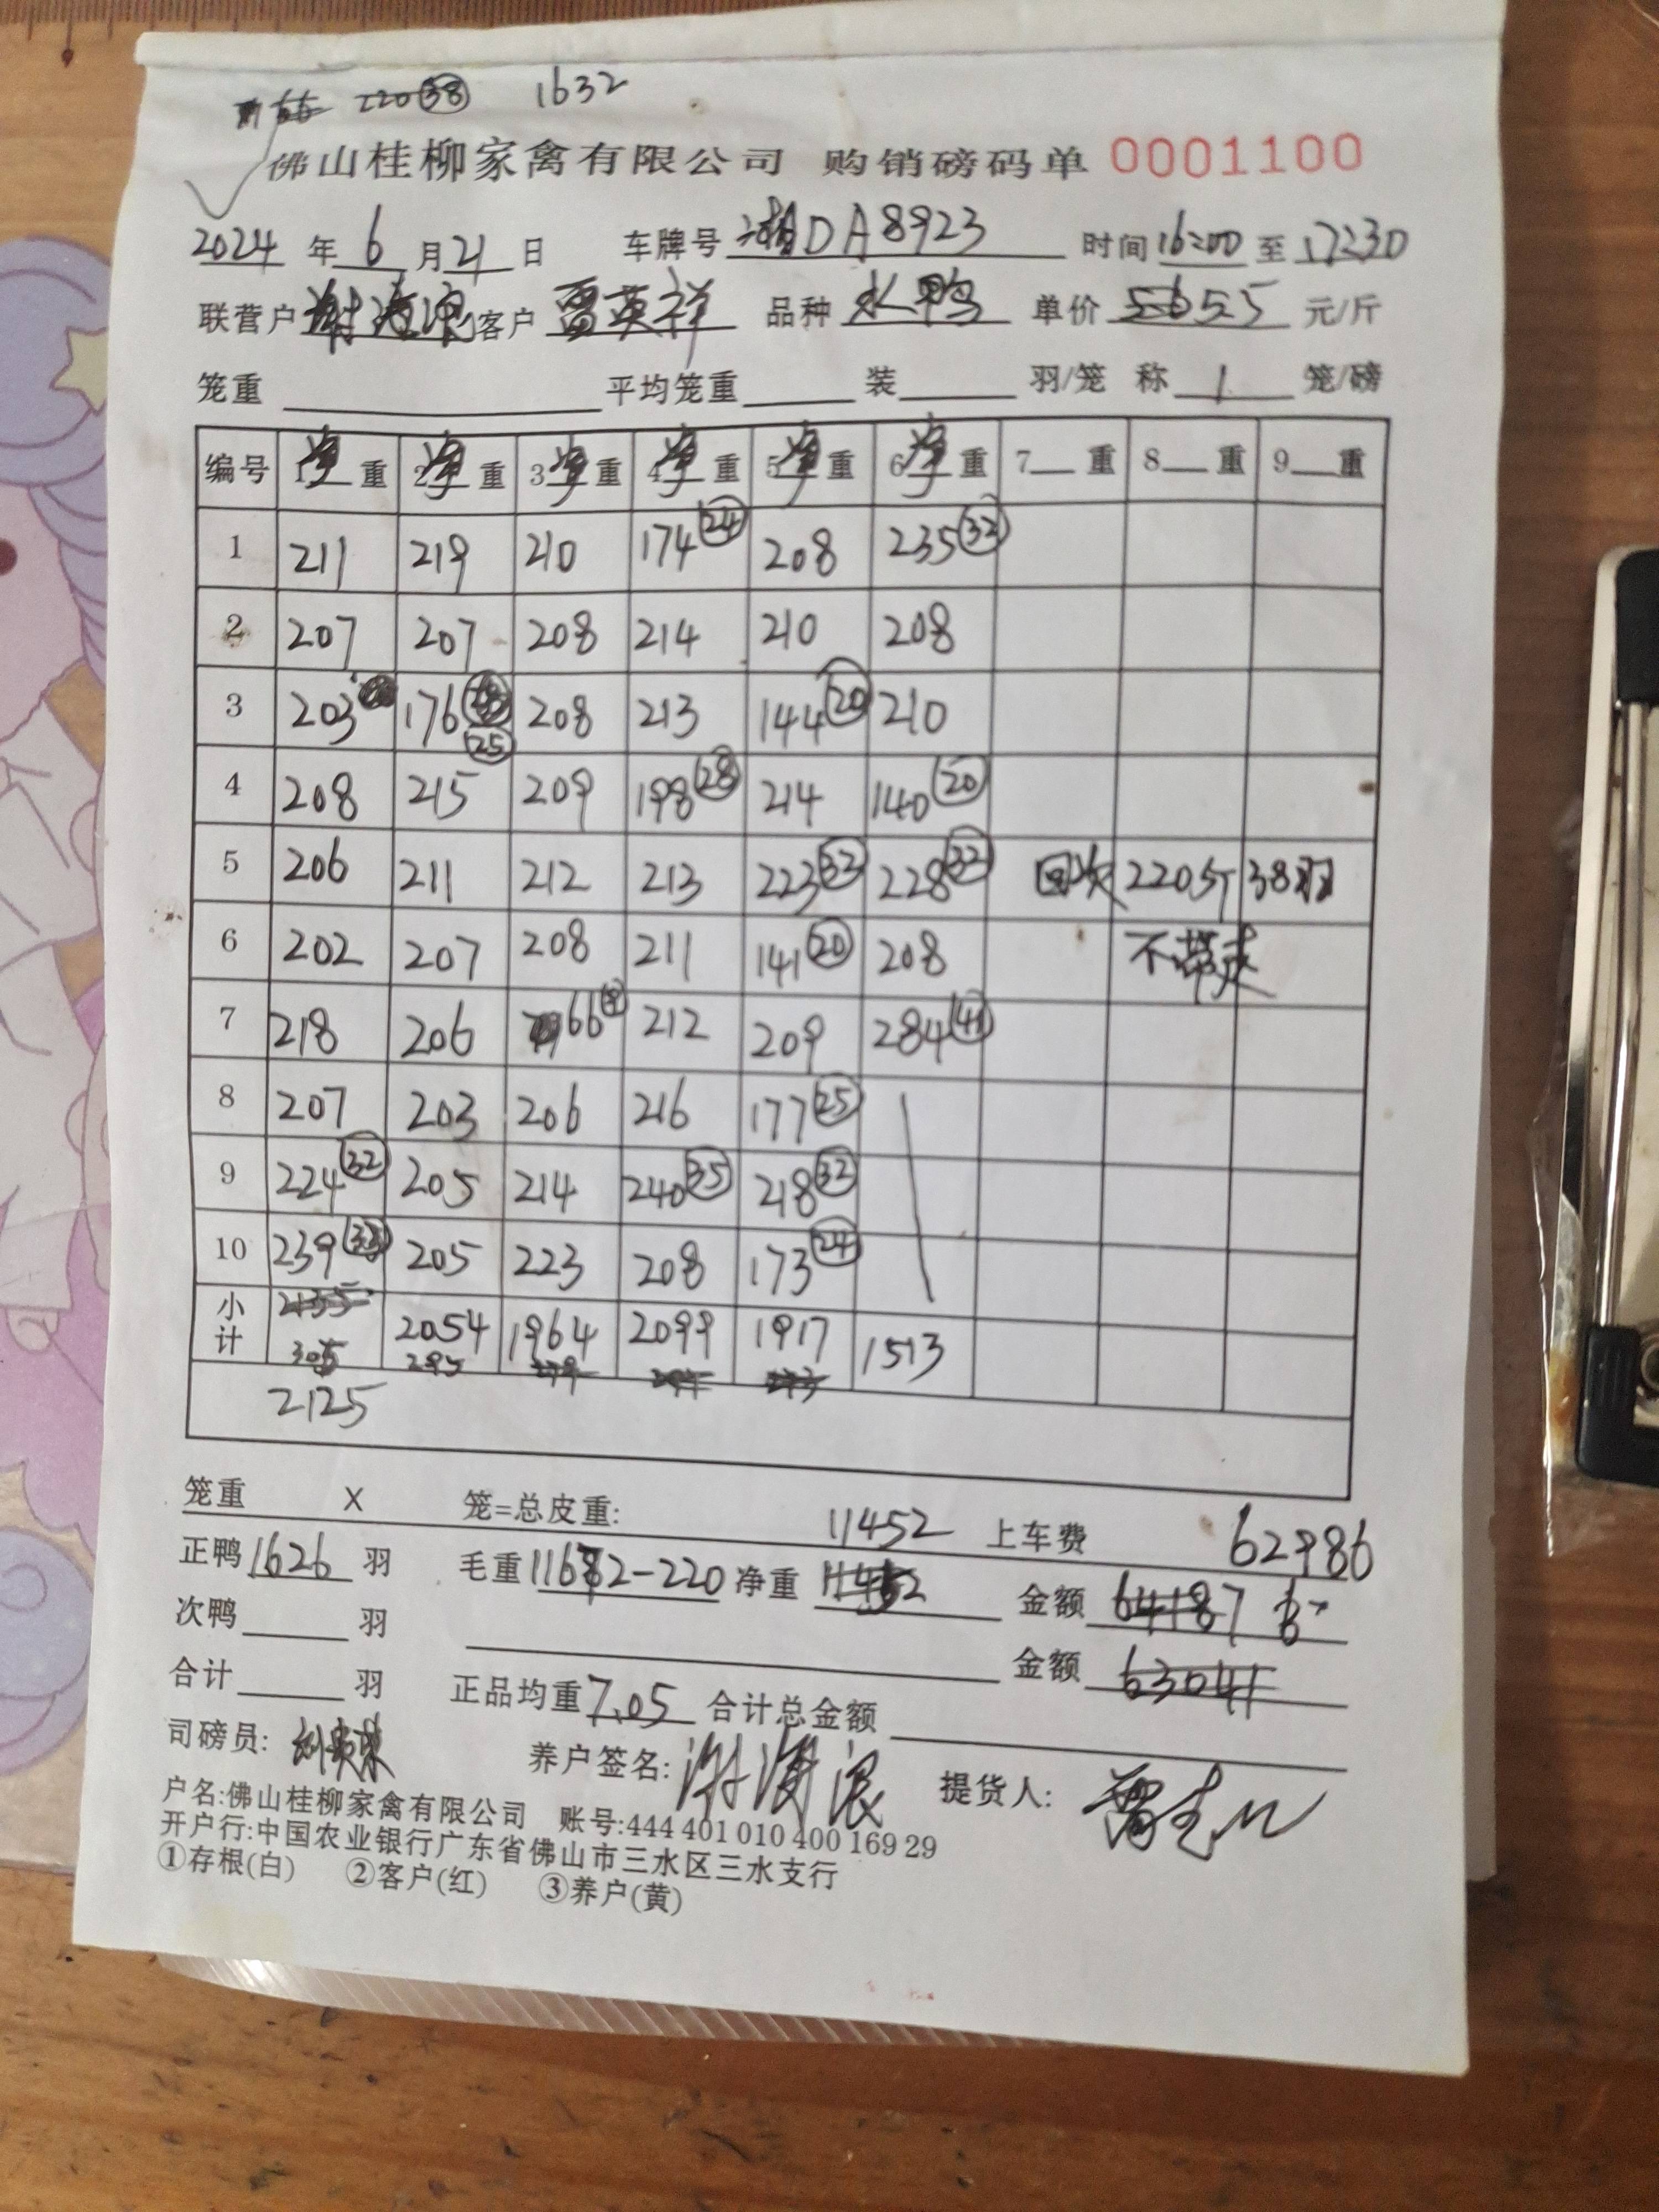 220 38 1632
佛山桂柳家禽有限公司 购销磅码单 0001100
2024 年 6 月 21 日 车牌号 湘DA8923 时间 16:00 至 17:30
联营户 谢海浪 客户 雷英祥 品种 水鸭 单价 5.5 元/斤
笼重 平均笼重 装 羽/笼 称 1 笼/磅
编号 1净重 2净重 3净重 4净重 5净重 6净重 7 重 8 重 9 重
1 211 219 210 174 24 208 235 33
2 207 207 208 214 210 208
3 203 176 25 208 213 144 20 210
4 208 215 209 198 28 214 140 20
5 206 211 212 213 223 32 228 32 回次 220斤 38羽
6 202 207 208 211 141 20 208 不带走
7 218 206 66 9 212 209 284 41
8 207 203 206 216 177 25
9 224 32 205 214 240 35 218 32
10 239 33 205 223 208 173 24
小计 2135 2054 1964 2099 1917 1513
305 295
2125
笼重 X 笼=总皮重: 11452 上车费 62986
正鸭 1626 羽 毛重 11672-220 净重 11452 金额 64187
次鸭 羽 金额 63041
合计 羽 正品均重 7.05 合计总金额
司磅员: 养户签名: 谢海浪 提货人:
户名:佛山桂柳家禽有限公司 账号:444 401 010 400 169 29
开户行:中国农业银行广东省佛山市三水区三水支行
①存根(白) ②客户(红) ③养户(黄)